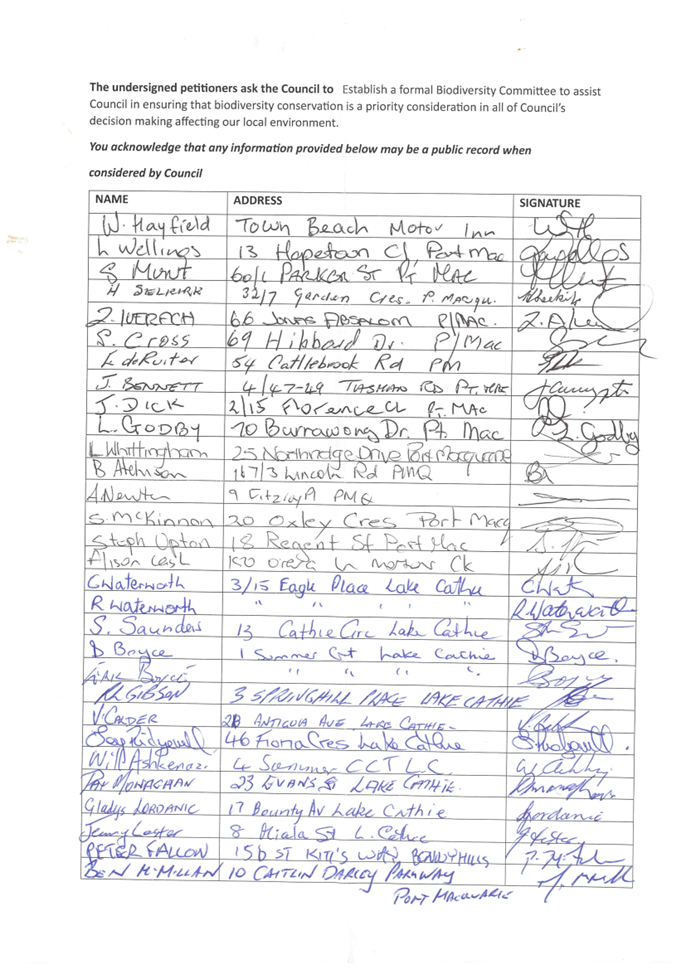 The undersigned petitioners ask the Council to Establish a formal Biodiversity Committee to assist
Council in ensuring that biodiversity conservation is a priority consideration in all of Council's
decision making affecting our local environment.
You acknowledge that any information provided below may be a public record when
considered by Council
NAME ADDRESS SIGNATURE
W. Hayfield Town Beach Motor Inn
L Wellings 13 Hopetoun Cl, Port Mac
S MUNT 60/1 PARKER ST Pt MAC
H SELKIRK 32/7 Garden Cres. P. Macqu.
Z. IVERACH 66 JONAS ABSALOM P/MAC.
S. CROSS 69 Hibbard Dr. P/Mac
deRuiter 54 Cattlebrook Rd PM
J. BENNETT 4/47-49 TASMAN RD PT.
J. DICK 2/15 Florence Pt. MAC
L. GODBY 70 Burrawong Dr. Pt. Mac L. Godby
L Whittingham 25 Northridge Drive Port Macquarie
B Atchison 167/3 Lincoln Rd PMQ
A Newton 9 PMQ
S. McKINNON 20 Oxley Cres Port Macq
Steph Upton 18 Regent St Port Mac
Alison Ln Ck
C Waterworth 3/15 Eagle Place Lake Cathie C Wat
R Waterworth " " " " R Waterworth
S. Saunders 13 Cathie Circ Lake Cathie
D Boyce 1 Summer Crt Lake Cathie D Boyce.
Boyce " " " "
GIBSON 3 SPRINGHILL PLACE LAKE CATHIE
V. CALDER 2B ANTIGUA AVE LAKE CATHIE
46 Fiona Cres Lake Cathie
Will 4 Summer C CT L C.
PAT MONAGHAN 23 EVANS St LAKE CATHIE.
Gladys LORDANIC 17 Bounty Av Lake Cathie
Jenny Lester 8 Miala St L. Cathie
PETER FALLON 15b ST KITT'S WAY BONNY HILLS
BEN McMILLAN 10 CAITLIN DARLEY PARKWAY
PORT MACQUARIE